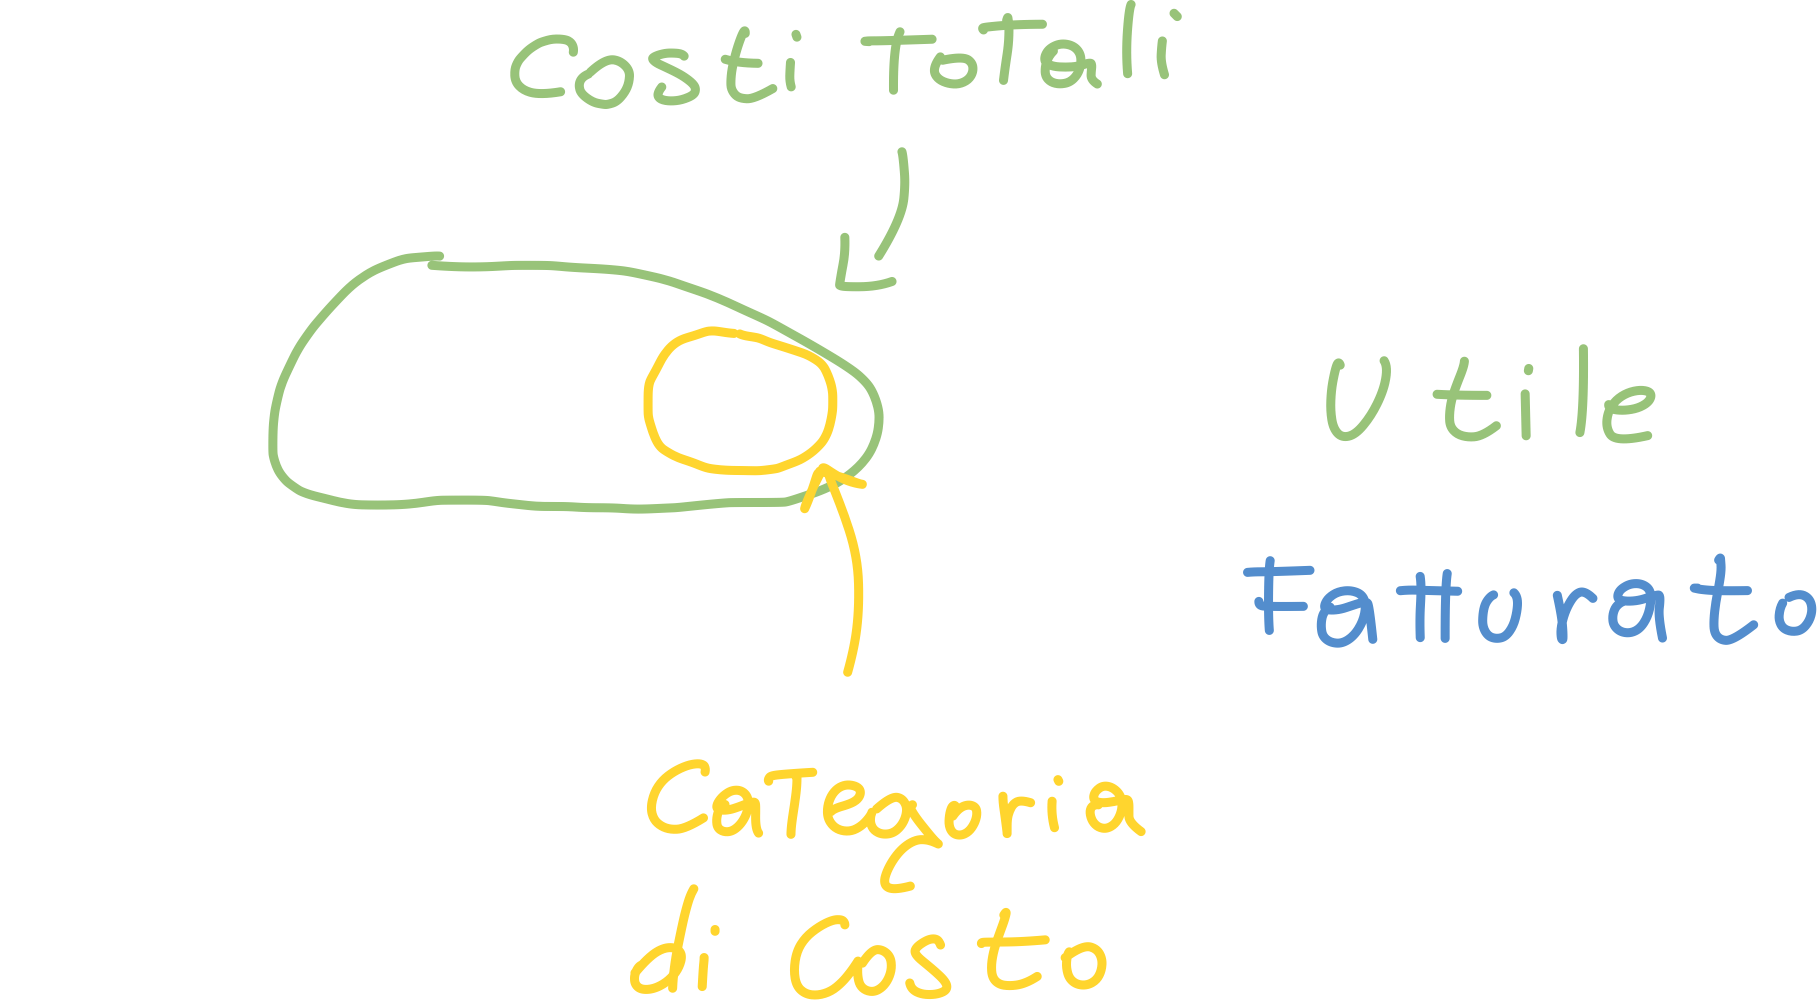 Costi Totali
Utile
Fatturato
Categoria
di Costo